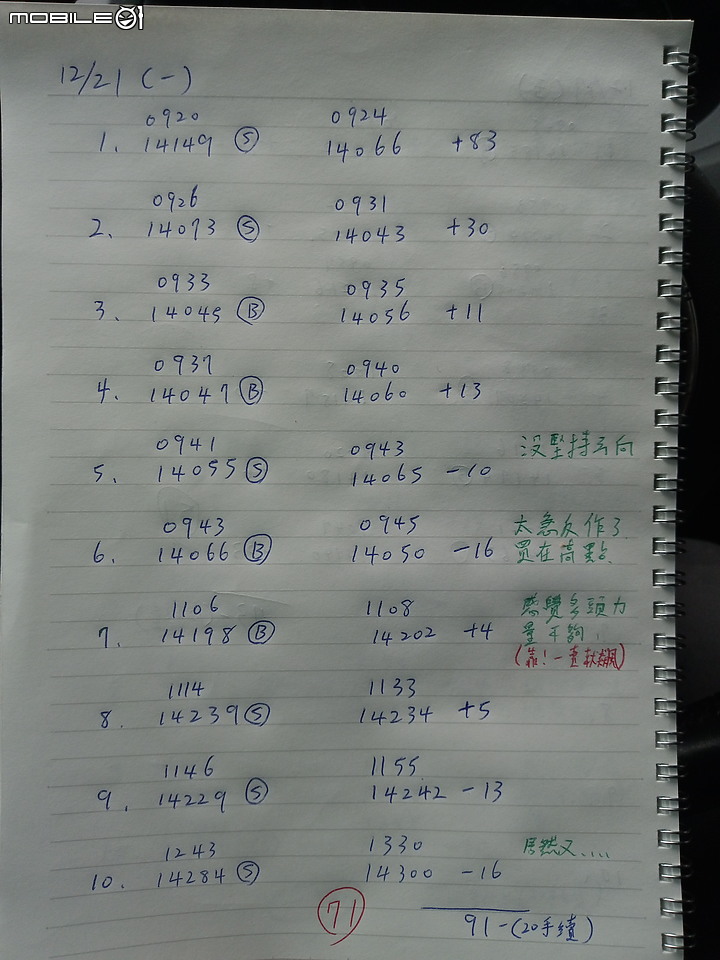 MOBILE01
12/21 (一)
0920 0924
1. 14149 Ⓢ 14066 +83
0926 0931
2. 14073 Ⓢ 14043 +30
0933 0935
3. 14045 Ⓑ 14056 +11
0937 0940
4. 14047 Ⓑ 14060 +13
0941 0943 沒堅持方向
5. 14055 Ⓢ 14065 -10
0943 0945 太急反作了
6. 14066 Ⓑ 14050 -16 買在高點.
1106 1108 感覺多頭力
7. 14198 Ⓑ 14202 +4 量不夠,
(靠!一直狂飆)
1114 1133
8. 14239 Ⓢ 14234 +5
1146 1155
9. 14229 Ⓢ 14242 -13
1243 1330 居然又....
10. 14284 Ⓢ 14300 -16
71 91-(20手續)